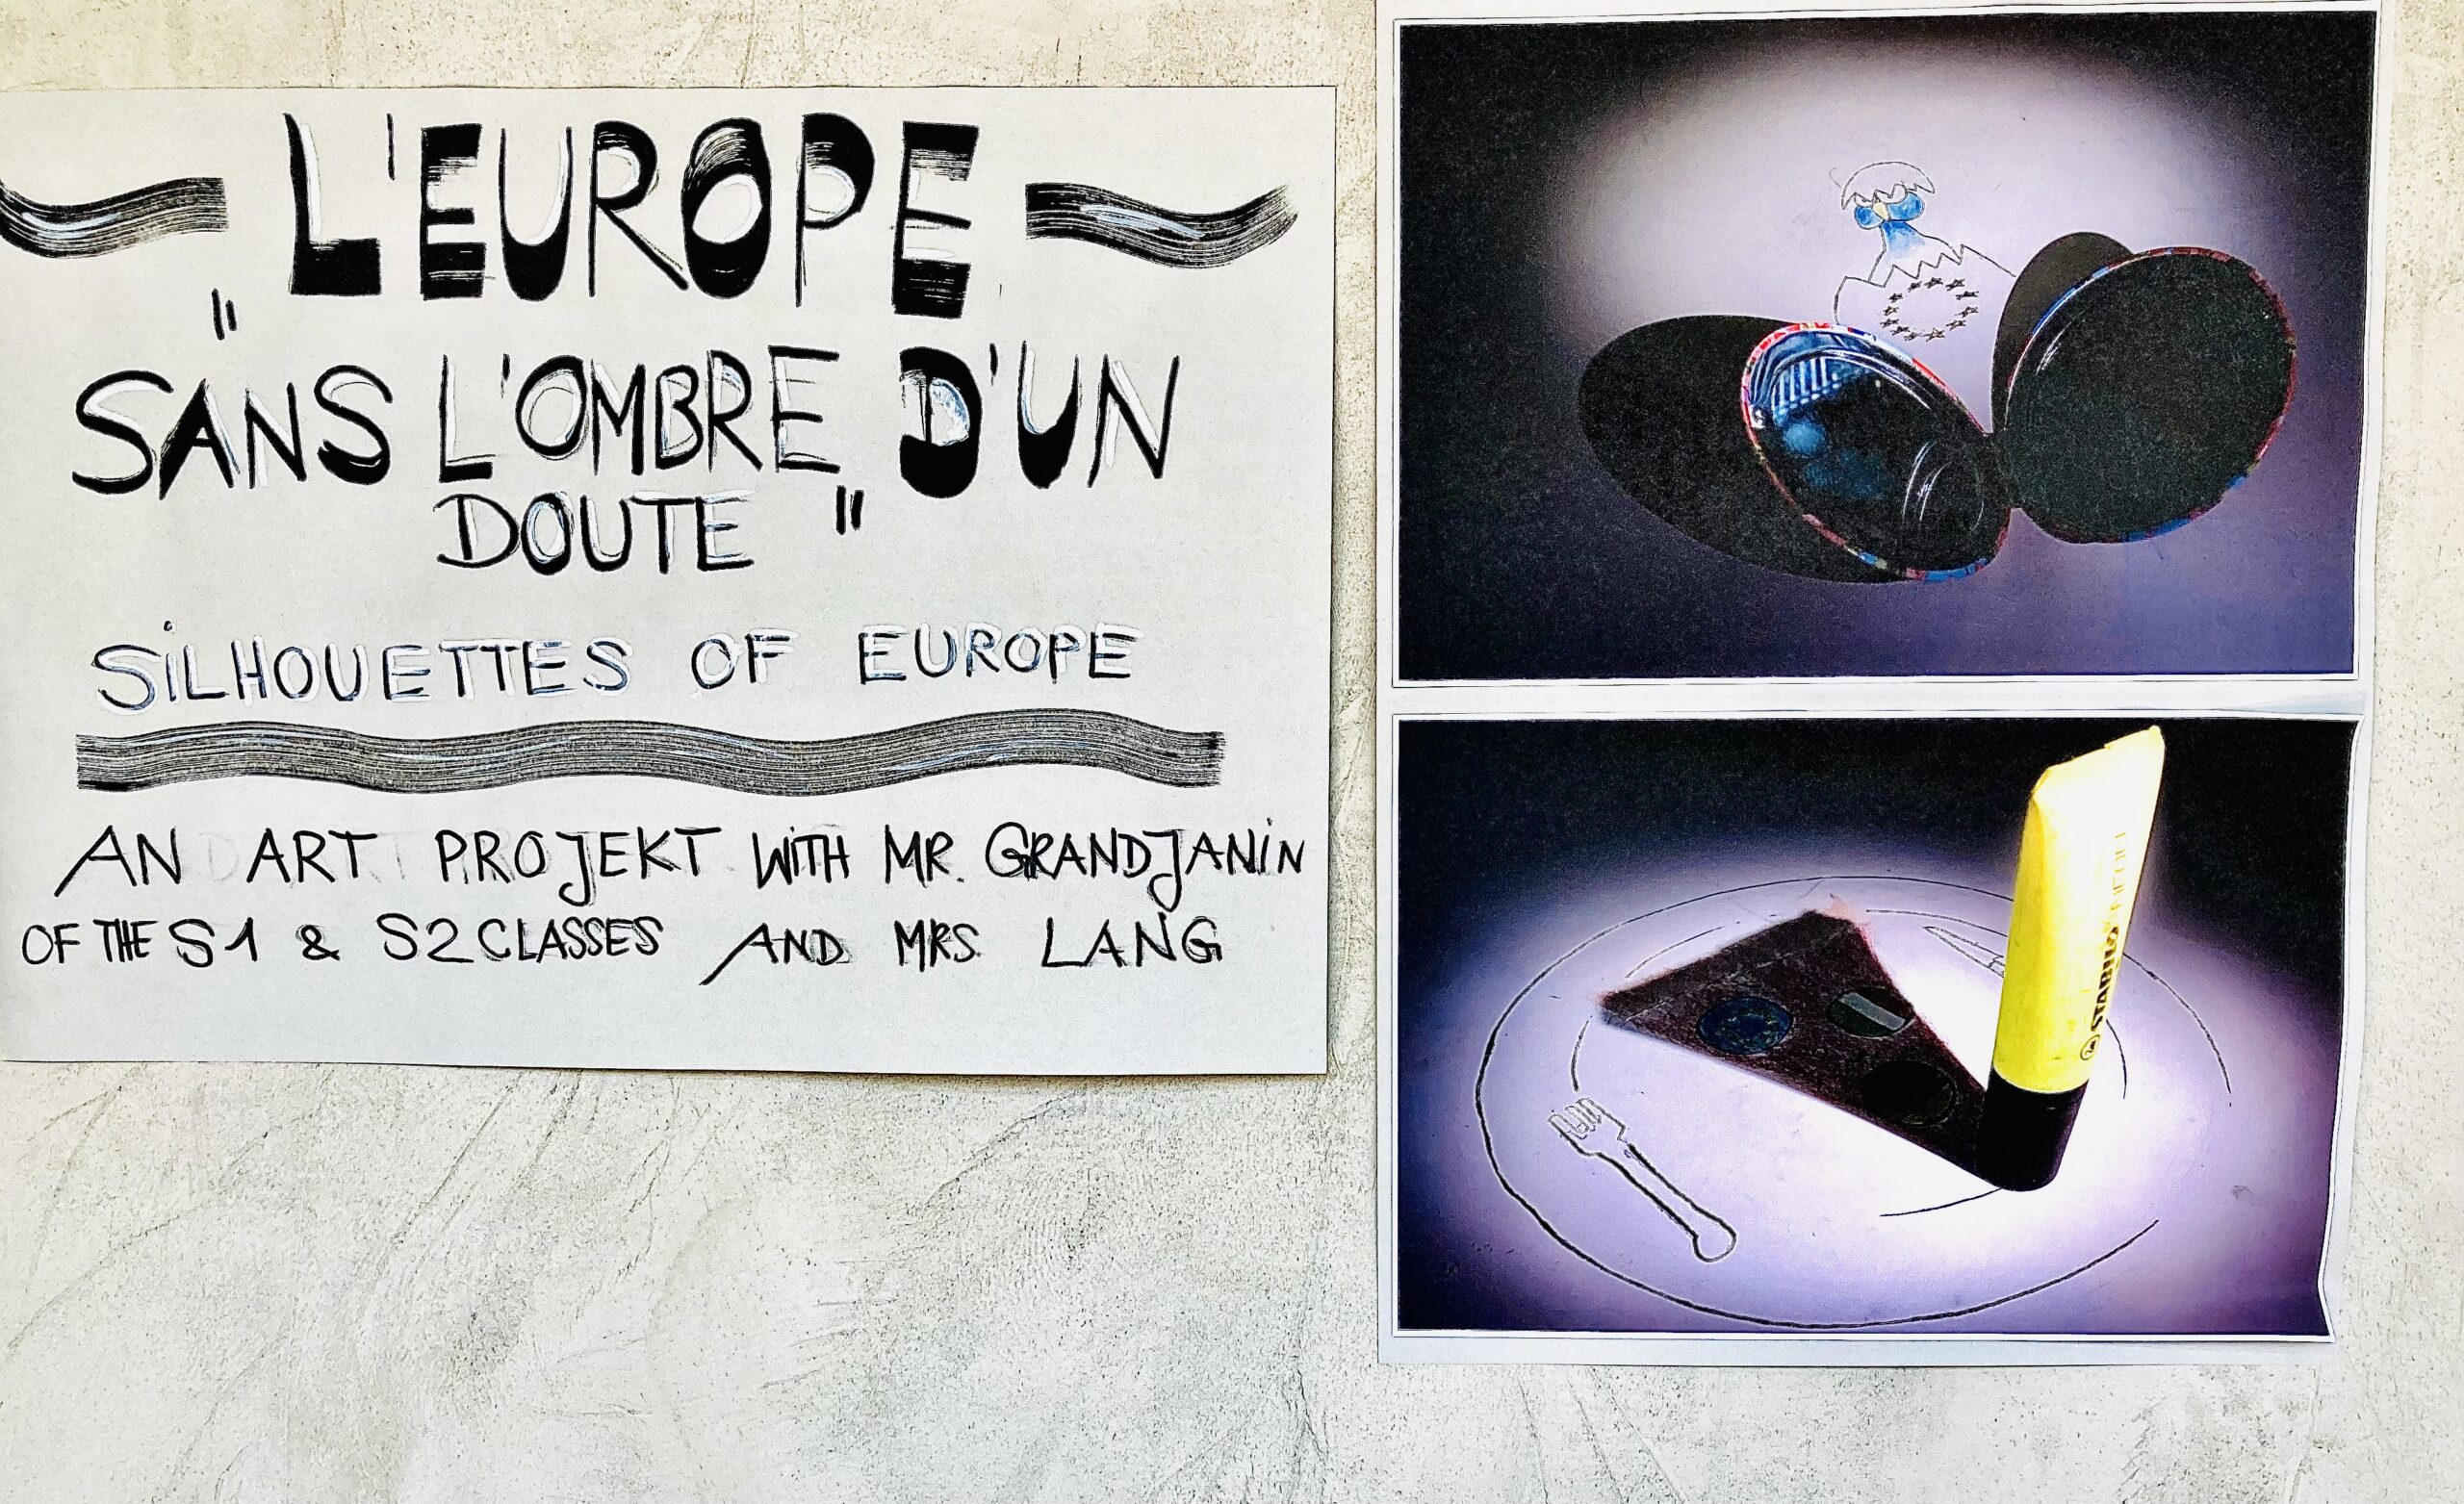 L'EUROPE
"SANS L'OMBRE D'UN
DOUTE"
SiLHOUETTES OF EUROPE
AN ART PROJEKT WiTH MR. GRANDJANiN
OF THE S1 & S2 CLASSES AND MRS. LANG
STABILO